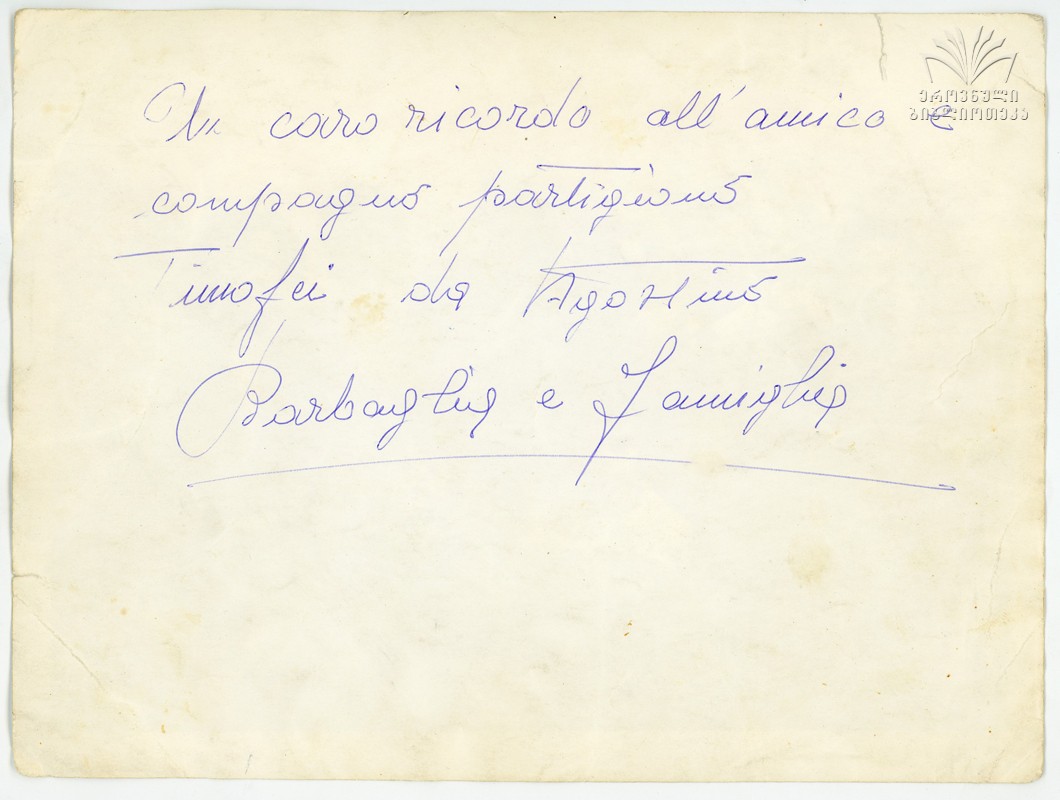 Un caro ricordo all'amico e
compagno partigiano
Timofei da Agostino
Barbaglia e famiglia
ეროვნული
ბიბლიოთეკა